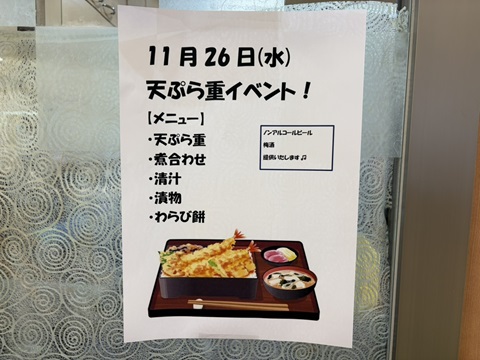 11月26日(水)
天ぷら重イベント！
【メニュー】
・天ぷら重
・煮合わせ
・清汁
・漬物
・わらび餅
ノンアルコールビール
梅酒
提供いたします♫